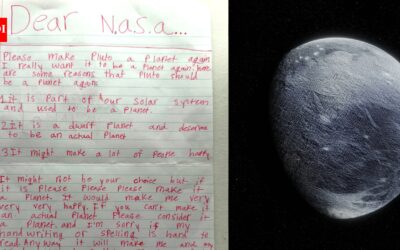 Dear N.a.s.a...
Please make Pluto a Planet again
I really want it to be a Planet again. here
are some reasons that Pluto should
be a Planet again.
1.it is part of our solar system
and used to be a Planet.
2.It is a dwarf Planet and deserve
to be an actual Planet
3.It might make a lot of People happy
It might not be your choice but if
it is Please Please Please make it
a Planet. It would make me very
very very happy. If you can't make it
an actual Planet Please consider it
a Planet and I'm sorry if my
hand writing or spelling is hard to
read. Any way it will make me and my